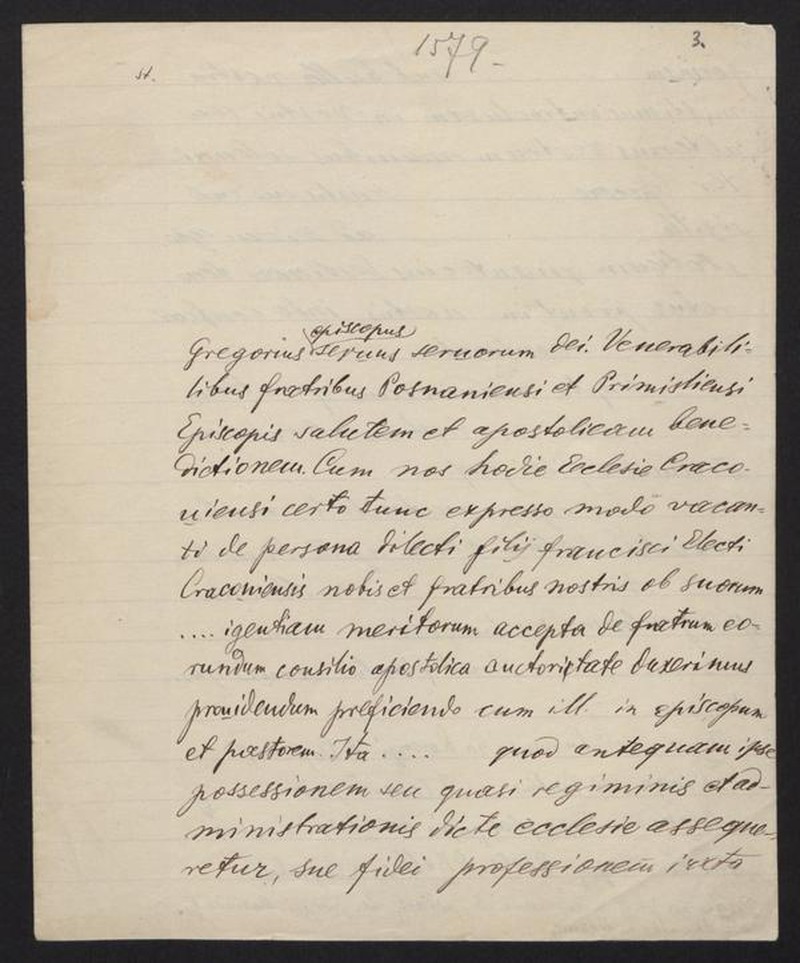 1579.
3.
st.
episcopus
Gregorius seruus seruorum dei. Venerabili-
libus fratribus Posnaniensi et Primisliensi
Episcopis salutem et apostolicam bene=
dictionem. Cum nos hodie Ecclesie Craco-
uiensi certo tunc expresso modo vacan=
ti de persona dilecti filij francisci Electi
Cracouiensis nobis et fratribus nostris ob suorum
.... igentiam meritorum accepta de fratrum eo=
rundum consilio apostolica auctoritate duxerimus
prouidendum preficiendo eum ill. in episcopum
et pastorem. Ita .... quod antequam ipse
possessionem seu quasi regiminis et ad-
ministrationis dicte ecclesie asseque-
retur, sue fidei professionem iuxta